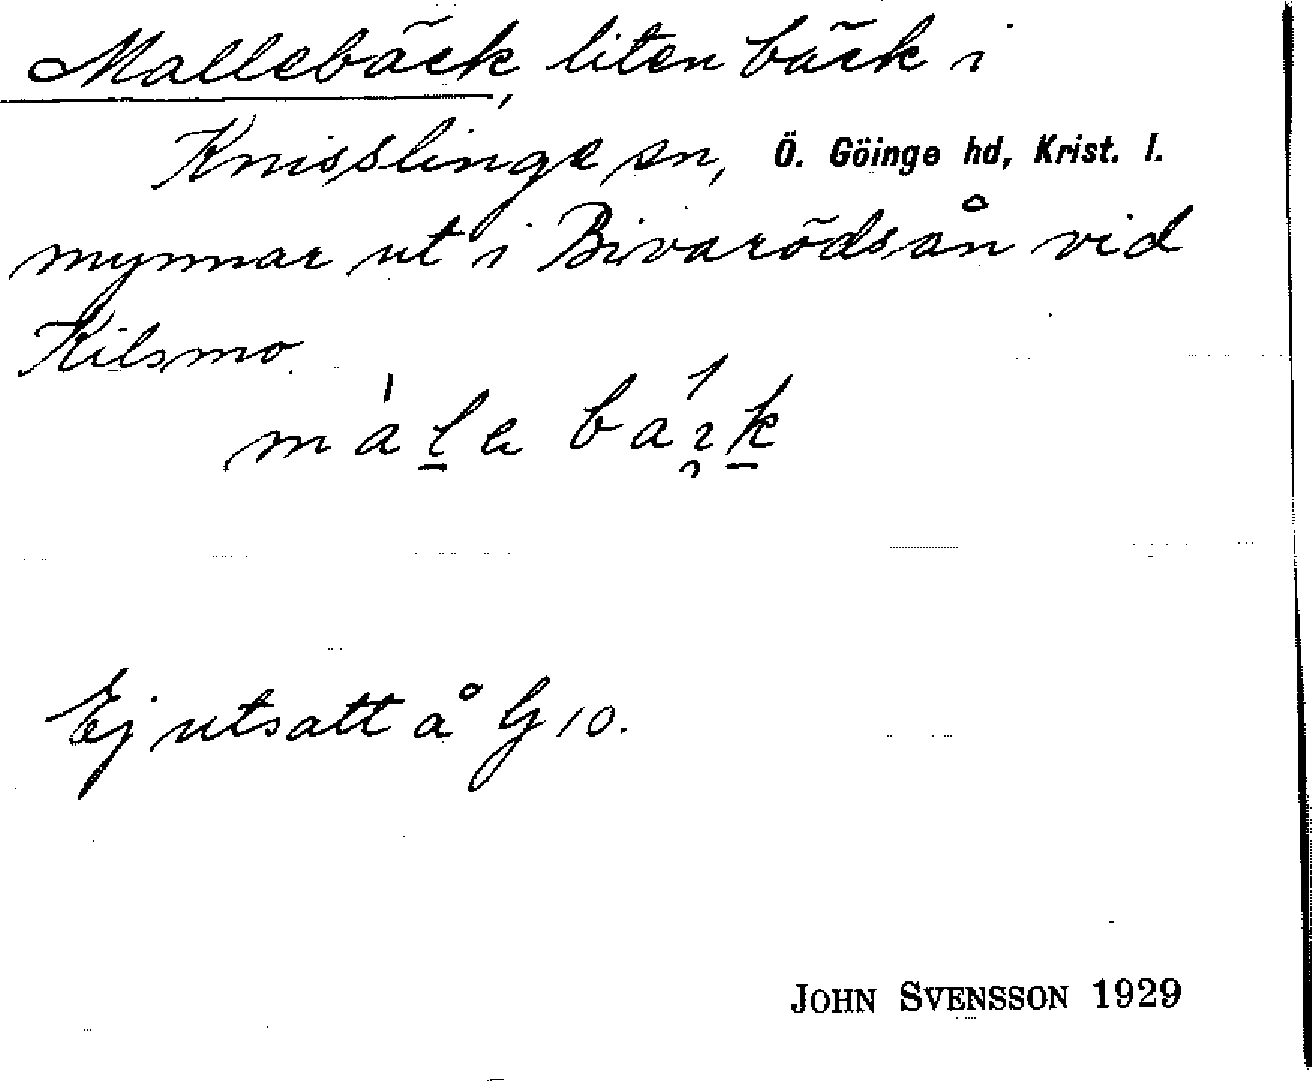 Mallebäck, liten bäck i
Knisslinge sn, Ö. Göinge hd, Krist. l.
mynnar ut i Bivarödsån vid
Kilsmo.
Ej utsatt å G 10.
JOHN SVENSSON 1929